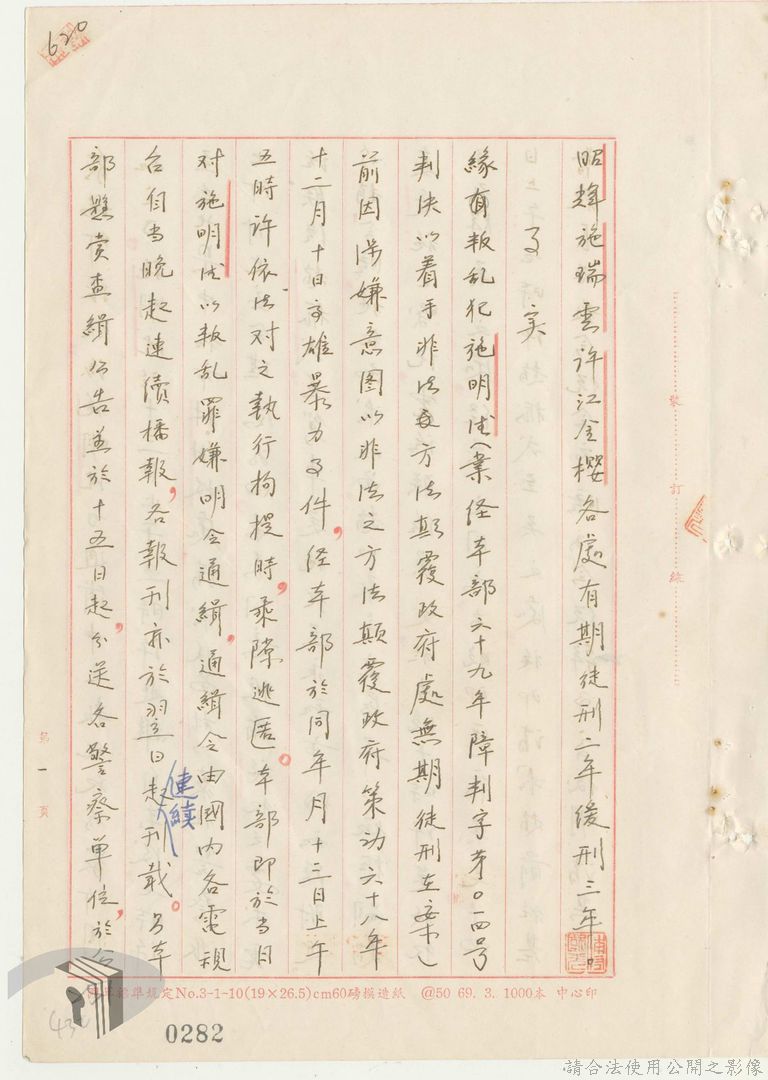 620
昭輝施瑞雲許江金櫻各處有期徒刑二年緩刑三年。
事實
緣有叛乱犯施明德(業经本部六十九年障判字第0一四号
判决以着手非法方法顛覆政府處無期徒刑在案)
前因涉嫌意图以非法之方法顛覆政府策动六十八年
十二月十日高雄暴力事件,经本部於同年月十三日上午
五時許依法对之執行拘提時,乘隙逃匿。本部即於当日
对施明德以叛乱罪嫌明令通緝,通緝令由國内各電視
台自当晚起連續播報,各報刊亦於翌日起連續刊載。另本
部懸賞查緝公告並於十五日起,分送各警察單位,於公
裝 訂 線
第一頁
年標準規定No.3-1-10(19×26.5)cm60磅模造紙 @50 69. 3. 1000本 中心印
0282
請合法使用公開之影像